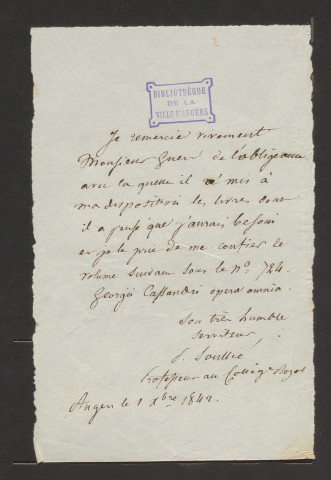 BIBLIOTHÈQUE
DE LA
VILLE D'ANGERS
Je remercie vivement
Monsieur Guerr de l'obligeance
avec laquelle il a mis à
ma disposition les livres dont
il a pensé que j'aurais besoin
et je le prie de me confier le
volume suivant sous le n° 724.
Georgii Cassandri opera omnia.
Son très humble
serviteur,
Soullié
Professeur au Collège Royal
Angers le 1 Xbre 1842.